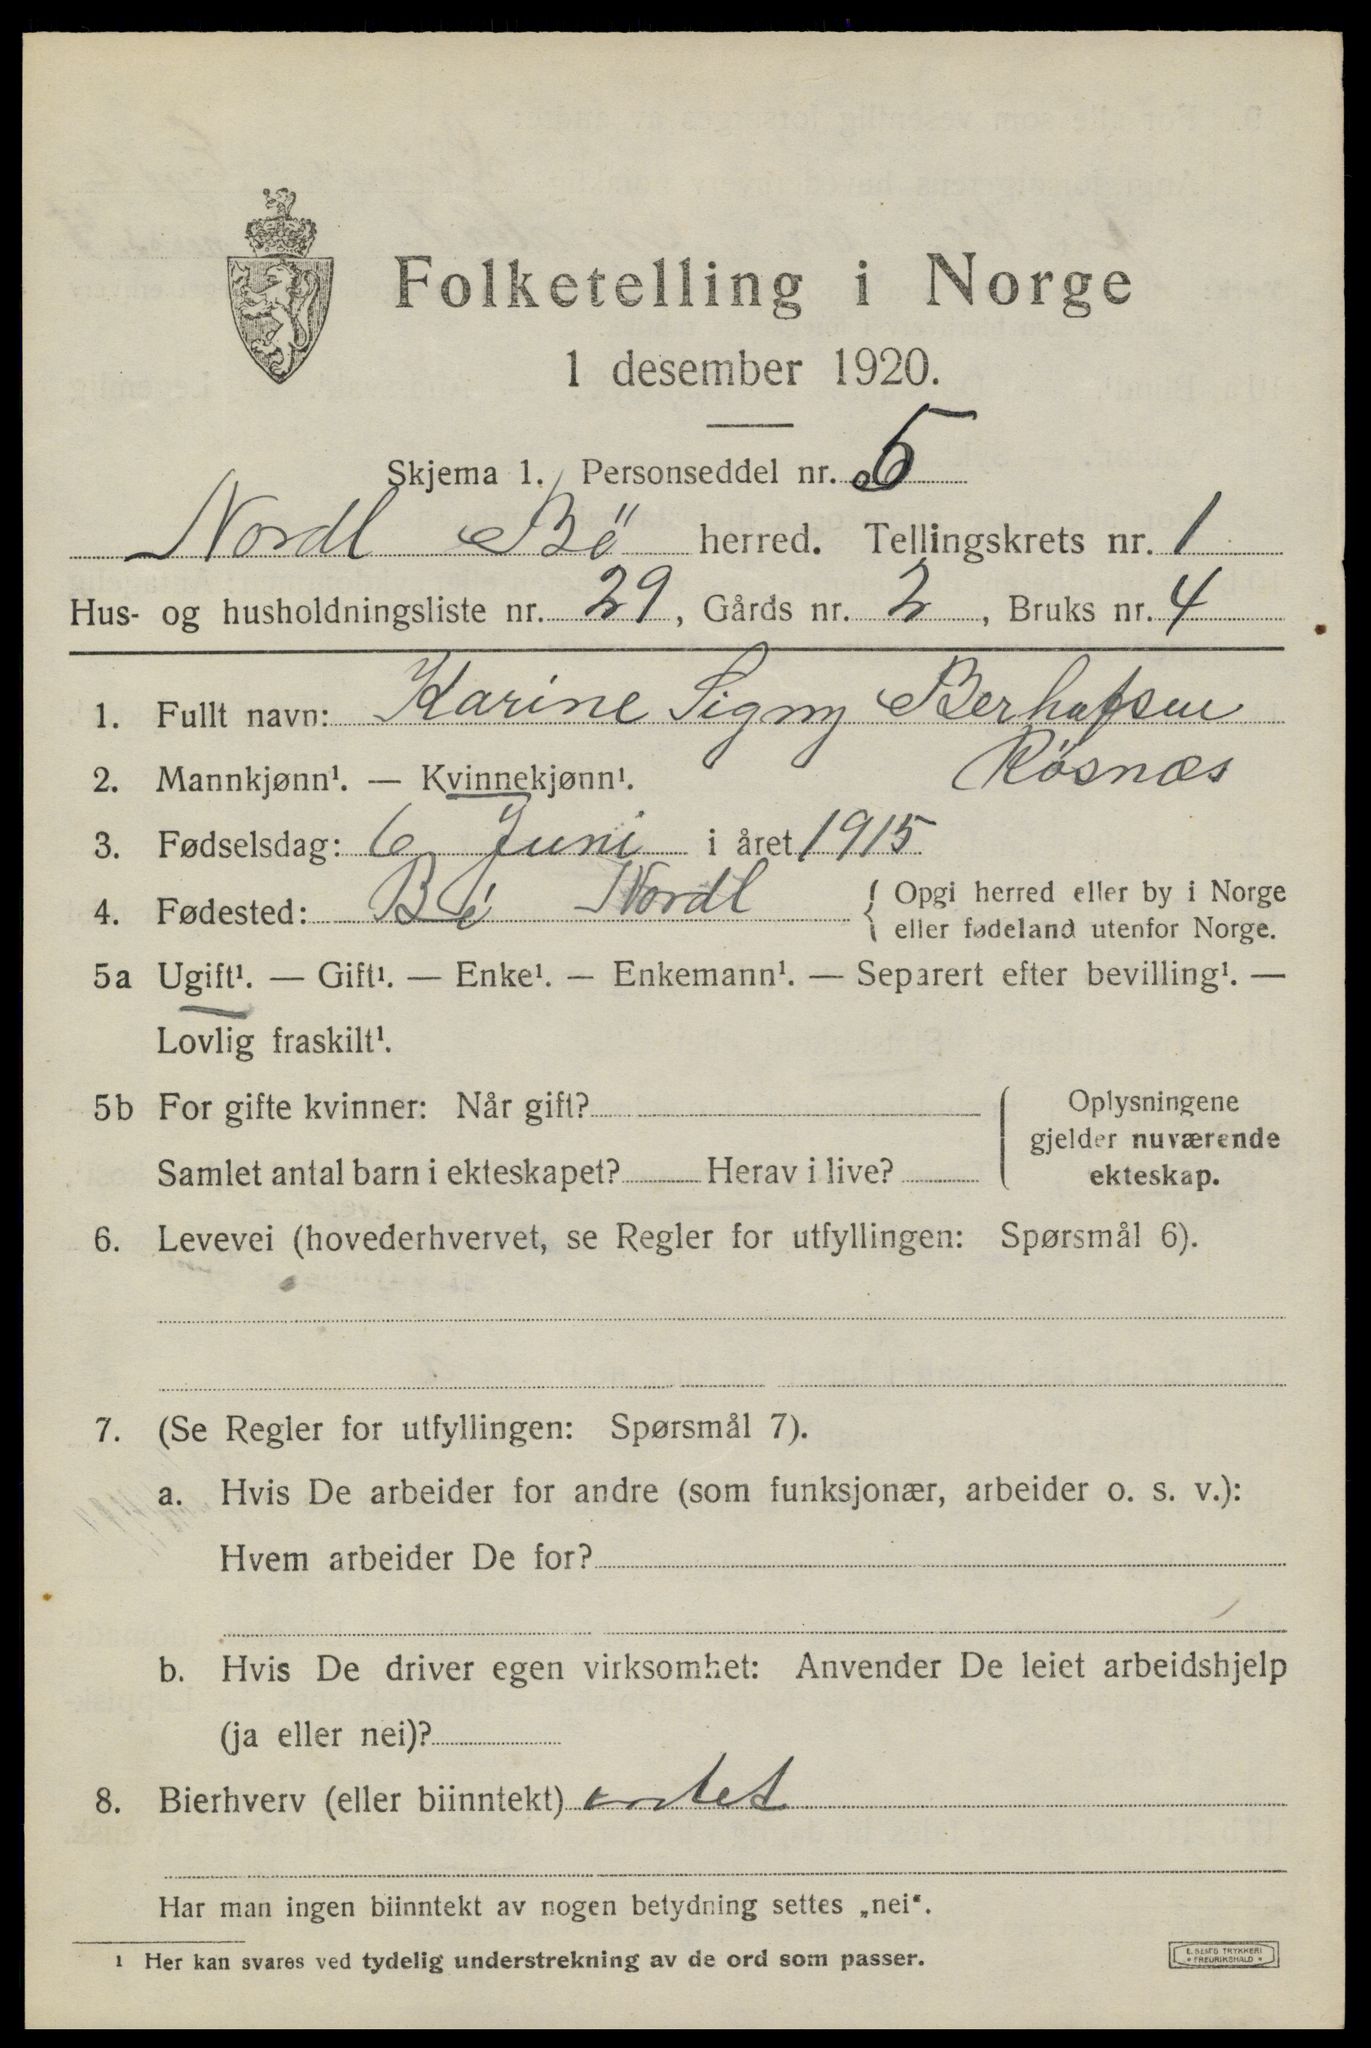 Folketelling i Norge
1 desember 1920.
Skjema 1. Personseddel nr. 5
Nordl Bö herred. Tellingskrets nr. 1
Hus- og husholdningsliste nr. 29, Gårds nr. 2, Bruks nr. 4
1. Fullt navn: Karine Signy
Røsnæs
2. Mannkjønn¹. — Kvinnekjønn¹.
3. Fødselsdag: 6 Juni i året 1915
4. Fødested: Bø Nordl { Opgi herred eller by i Norge
eller fødeland utenfor Norge.
5a Ugift¹. — Gift¹. — Enke¹. — Enkemann¹. — Separert efter bevilling¹. —
Lovlig fraskilt¹.
5b For gifte kvinner: Når gift?
Samlet antal barn i ekteskapet? Herav i live?
Oplysningene
gjelder nuværende
ekteskap.
6. Levevei (hovederhvervet, se Regler for utfyllingen: Spørsmål 6).
7. (Se Regler for utfyllingen: Spørsmål 7).
a. Hvis De arbeider for andre (som funksjonær, arbeider o. s. v.):
Hvem arbeider De for?
b. Hvis De driver egen virksomhet: Anvender De leiet arbeidshjelp
(ja eller nei)?
8. Bierhverv (eller biinntekt) intet
Har man ingen biinntekt av nogen betydning settes „nei“.
¹ Her kan svares ved tydelig understrekning av de ord som passer.
E. SEMS TRYKKERI
* FREDRIKSHALD *